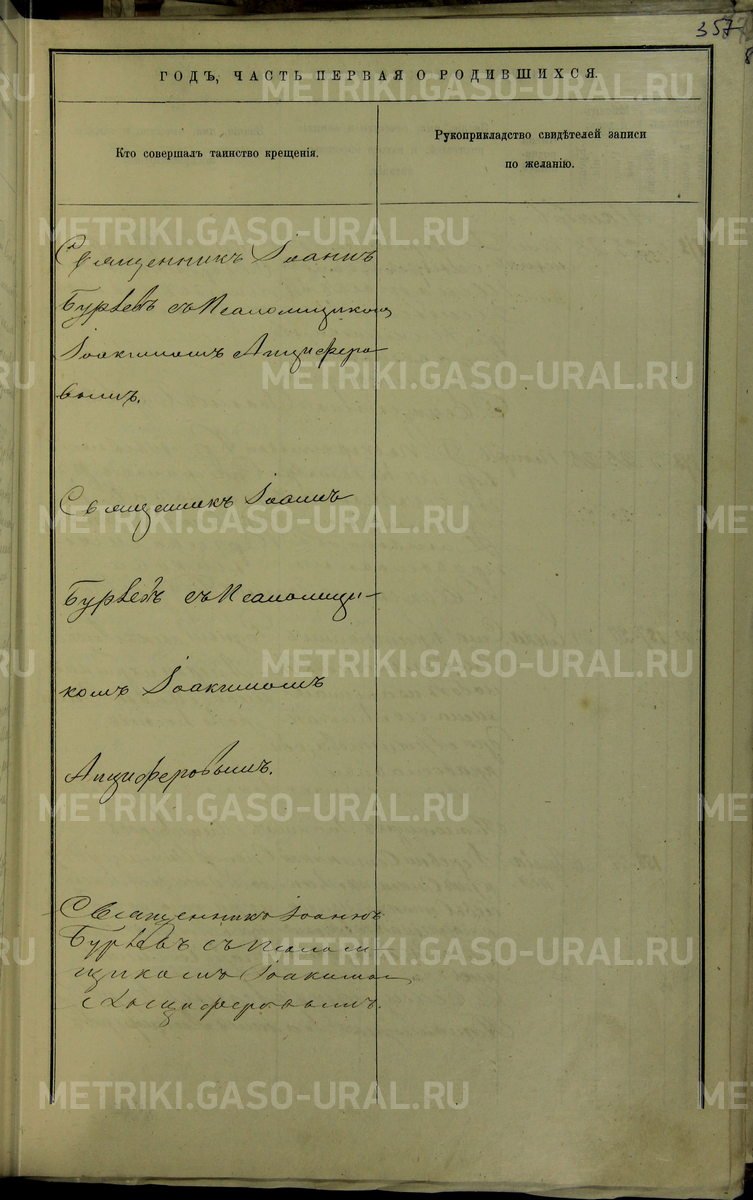 357
ГОДЪ, ЧАСТЬ ПЕРВАЯ О РОДИВШИХСЯ.
Кто совершалъ таинство крещенія.
Рукоприкладство свидѣтелей записи
по желанію.
Священникъ Іоаннъ
Бурѣевъ съ Псаломщикомъ
Іоакимомъ Анциферо
вымъ.
Священникъ Іоаннъ
Бурѣевъ съ Псаломщи-
комъ Іоакимомъ
Анциферовымъ.
Священникъ Іоаннъ
Бурѣевъ съ Псалом-
щикомъ Іоакимом
Анциферовымъ.
METRIKI.GASO-URAL.RU